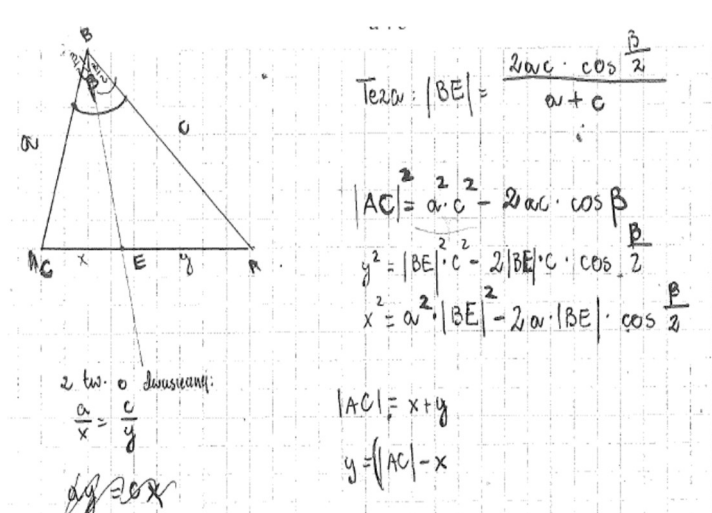 B
β/2 β/2
β
a
c
C x E y A
z tw. o dwusiecznej:
a/x = c/y
ay = cx
Teza: |BE| = 2ac · cos β/2 / a + c
|AC|² = a² · c² - 2ac · cos β
y² = |BE|² · c² - 2|BE| · c · cos β/2
x² = a² · |BE|² - 2a · |BE| · cos β/2
|AC| = x + y
y = |AC| - x